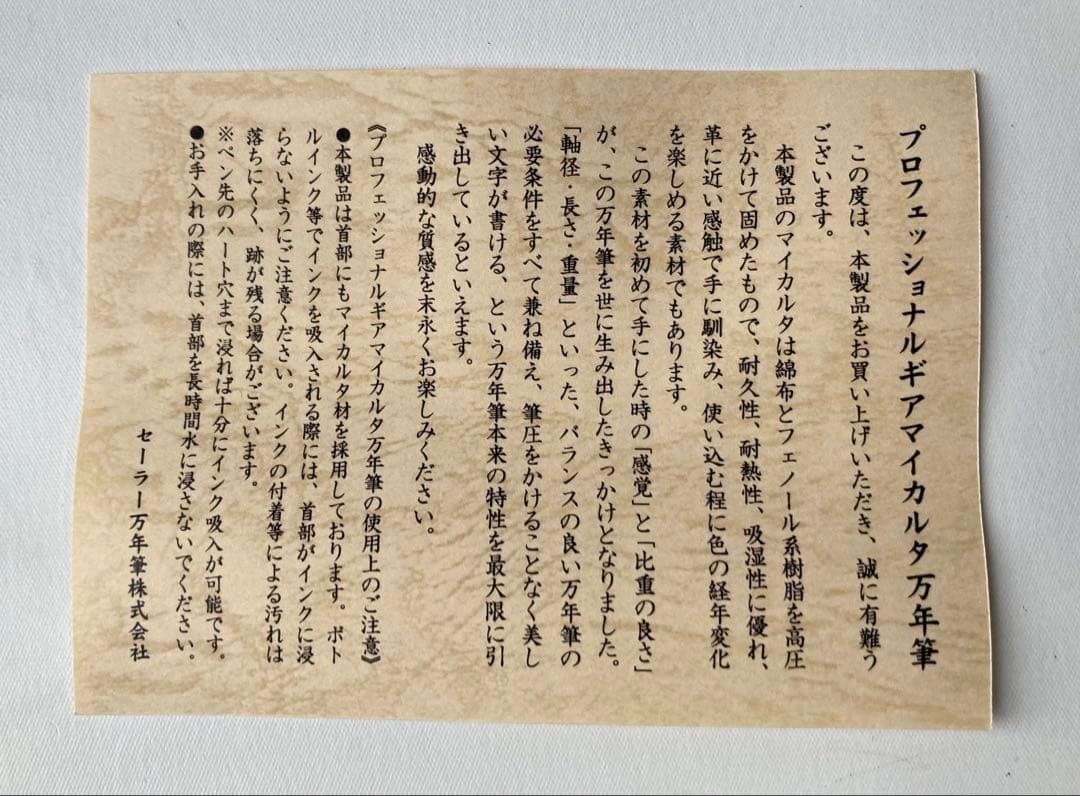 プロフェッショナルギアマイカルタ万年筆
この度は、本製品をお買い上げいただき、誠に有難う
ございます。
本製品のマイカルタは綿布とフェノール系樹脂を高圧
をかけて固めたもので、耐久性、耐熱性、吸湿性に優れ、
革に近い感触で手に馴染み、使い込む程に色の経年変化
を楽しめる素材でもあります。
この素材を初めて手にした時の「感覚」と「比重の良さ」
が、この万年筆を世に生み出したきっかけとなりました。
「軸径・長さ・重量」といった、バランスの良い万年筆の
必要条件をすべて兼ね備え、筆圧をかけることなく美し
い文字が書ける、という万年筆本来の特性を最大限に引
き出しているといえます。
感動的な質感を末永くお楽しみください。
《プロフェッショナルギアマイカルタ万年筆の使用上のご注意》
●本製品は首部にもマイカルタ材を採用しております。ボト
ルインク等でインクを吸入される際には、首部がインクに浸
らないようにご注意ください。インクの付着等による汚れは
落ちにくく、跡が残る場合がございます。
※ペン先のハート穴まで浸れば十分にインク吸入が可能です。
●お手入れの際には、首部を長時間水に浸さないでください。
セーラー万年筆株式会社